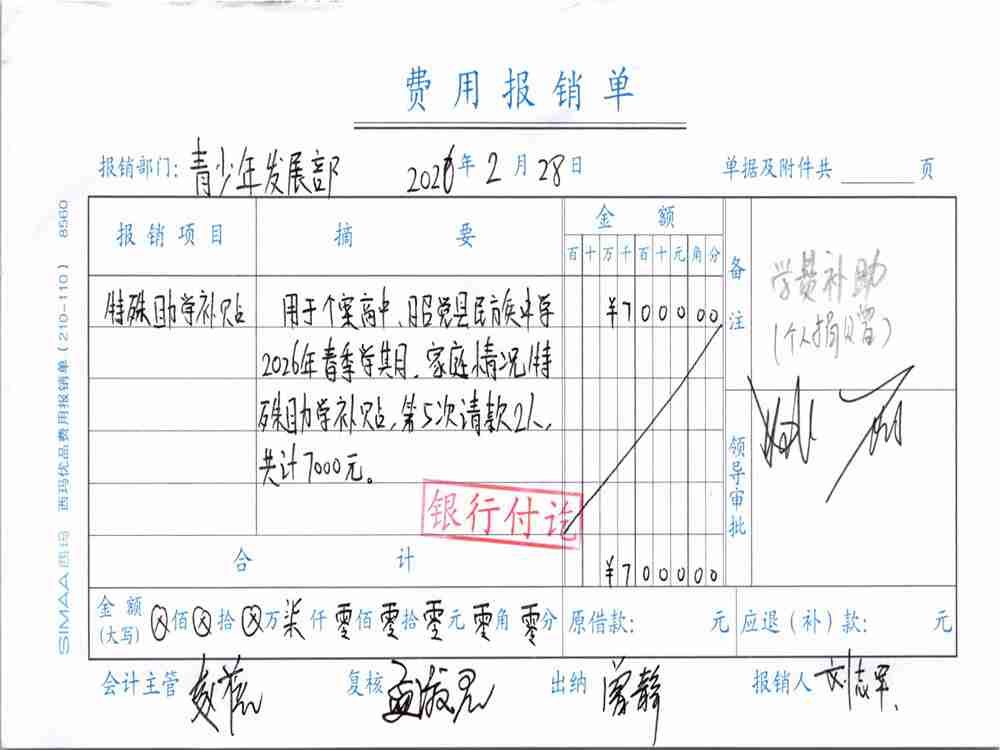 费用报销单
报销部门：青少年发展部 2026年2月28日 单据及附件共 页
报销项目 摘要 金额
百十万千百十元角分
备注
学费补助
(个人捐赠)
特殊助学补贴 用于个案高中、昭觉县民族中学 ¥700000
2026年春季学期、家庭情况特
殊助学补贴,第5次请款2人,
共计7000元。
银行付讫
领导审批
合计 ¥700000
金额(大写) ⊗佰⊗拾⊗万柒仟零佰零拾零元零角零分 原借款： 元 应退（补）款： 元
会计主管 复核 出纳 曾静 报销人 刘志军
SIMAA 西玛 西玛优品费用报销单（210-110） 8560